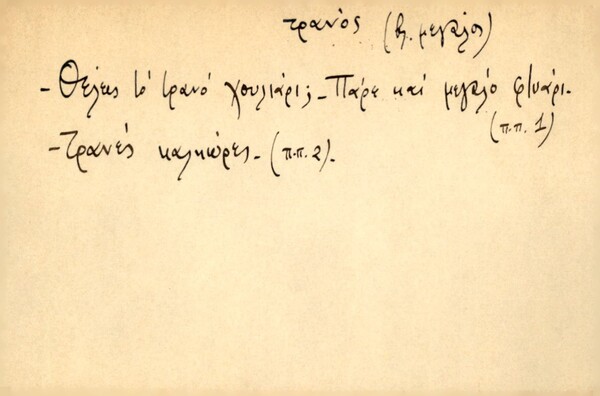 τρανός (βλ. μεγάλος)
- Θέλεις τό τρανό χουλιάρι; - Πάρε καί μεγάλο φτυάρι.
(π.π. 1)
- Τρανές καλκώρες. (π.π. 2).